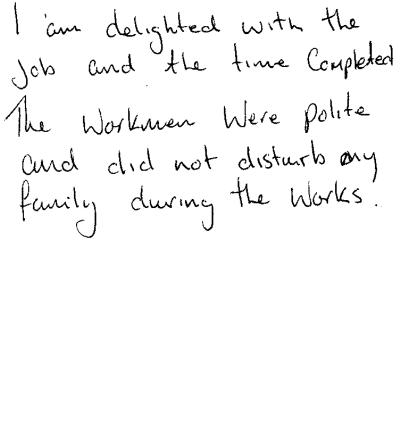 I am delighted with the
Job and the time Completed
The Workmen Were polite
and did not disturb my
family during the Works.